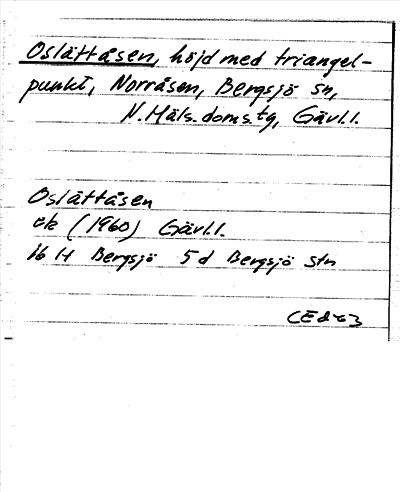 Oslättåsen, höjd med triangel-
punkt, Norråsen, Bergsjö sn,
N. Häls. doms.tg, Gävl.l.
Oslättåsen
ek (1960) Gävl.l.
16 H Bergsjö 5 d Bergsjö stn